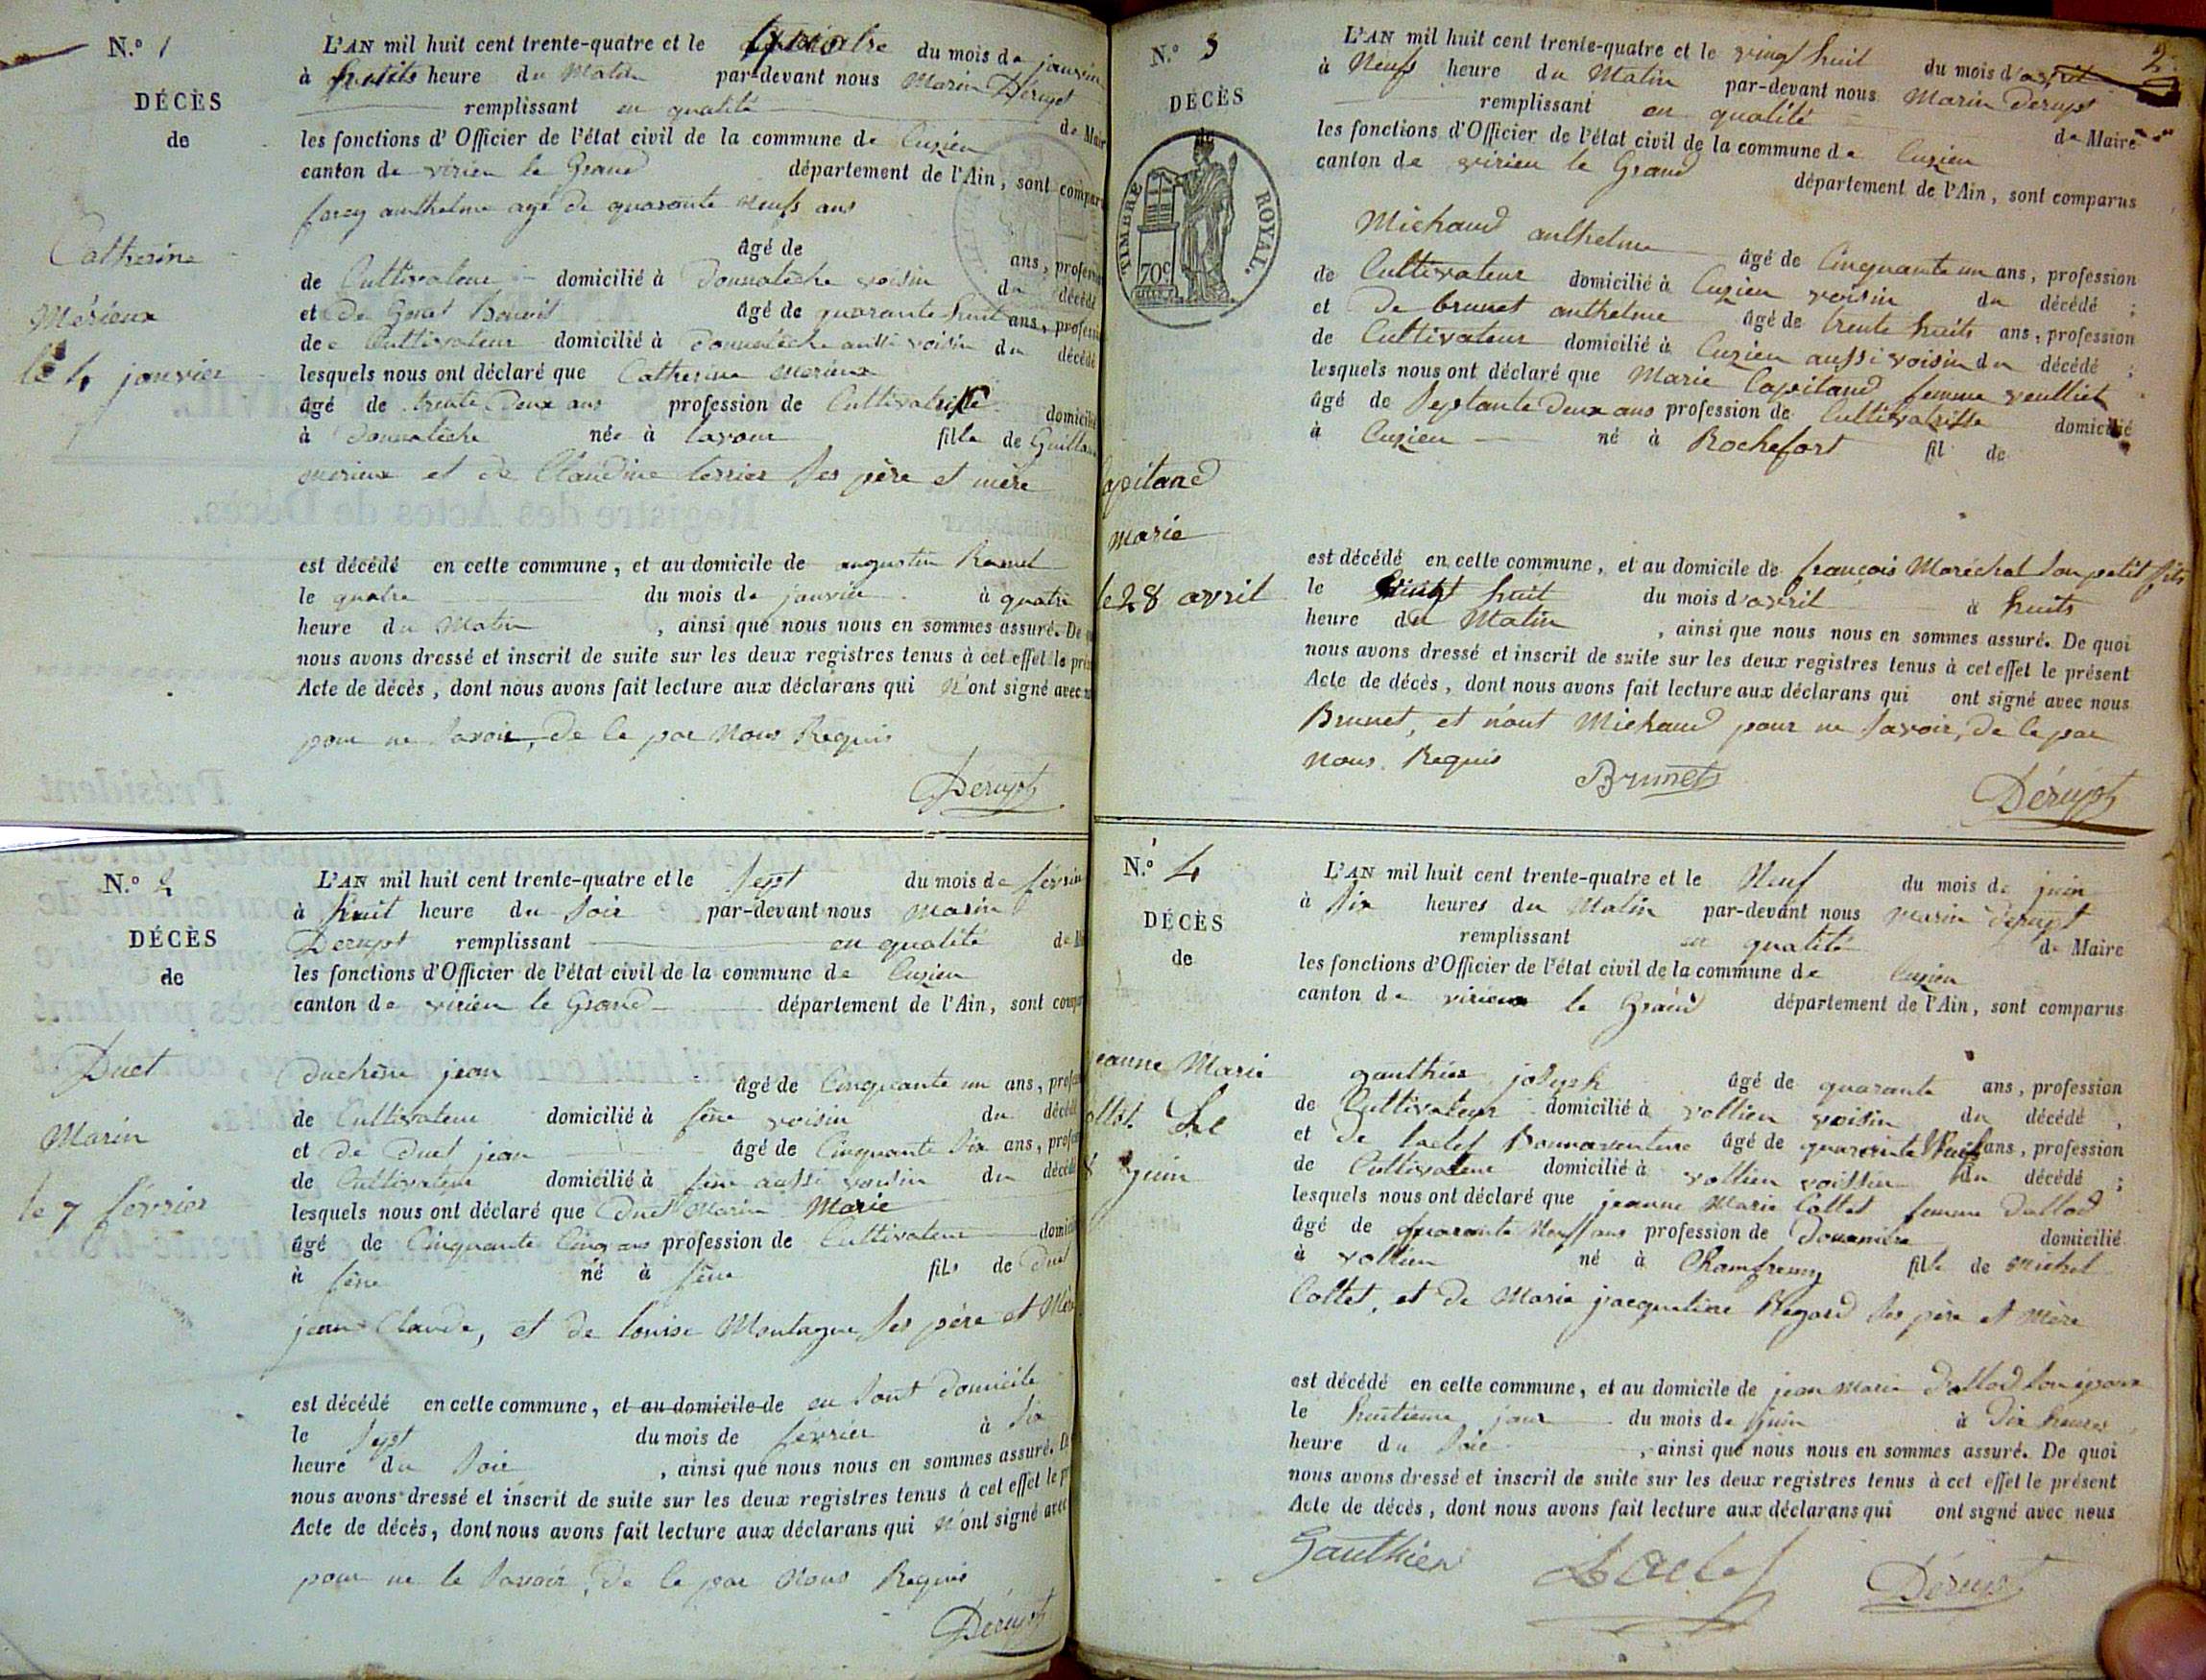 N.° 1
DÉCÈS
de
Catherine
Mérieux
le 4 janvier
L'AN mil huit cent trente-quatre et le quatre du mois de janvier
à huits heure du Matin par-devant nous Marin Dérupt
remplissant en qualité de Mair
les fonctions d'Officier de l'état civil de la commune de Cuzieu
canton de virieu le Grand département de l'Ain, sont compar
anthelme agé de quarante neufs ans
âgé de ans, profession
de Cultivateur domicilié à Donnalèche voisin du décédé
et De Benoit âgé de quarante huit ans, profession
de Cultivateur domicilié à Donnalèche aussi voisin du décédé
lesquels nous ont déclaré que Catherine merieux
âgé de trente Deux ans profession de Cultivatrisse domicilié
à Donnalèche née à lavour fille de Guillau
merieux et de Claudine terrier ses père et mère
est décédé en cette commune, et au domicile de augustin Ramel
le quatre du mois de janvier à quatre
heure du Matin, ainsi que nous nous en sommes assuré. De
nous avons dressé et inscrit de suite sur les deux registres tenus à cet effet le pré
Acte de décès, dont nous avons fait lecture aux déclarans qui n'ont signé avec
pour ne savoir, de le par Nous Requis
Dérupt
N.° 2
DÉCÈS
de
Duet
Marin
le 7 février
L'AN mil huit cent trente-quatre et le sept du mois de février
à huit heure du soir par-devant nous Marin
Derupt remplissant en qualité de
les fonctions d'Officier de l'état civil de la commune de Cuzieu
canton de virieu le Grand département de l'Ain, sont compar
Duchêne jean âgé de Cinquante un ans, profes
de Cultivateur domicilié à sêne voisin du décédé
et De Duet jean âgé de Cinquante six ans, profes
de Cultivateur domicilié à sêne aussi voisin du décédé
lesquels nous ont déclaré que Duet Marin Marie
âgé de Cinquante Cinq ans profession de Cultivateur domicilié
à sêne né à sêne fils de Duet
jean Claude, et de Louise Montagne ses père et Mère
est décédé en cette commune, et au domicile de en sont Domicile
le sept du mois de février à six
heure du soir, ainsi que nous nous en sommes assuré. De
nous avons dressé et inscrit de suite sur les deux registres tenus à cet effet le p
Acte de décès, dont nous avons fait lecture aux déclarans qui n'ont signé avec
pour ne le savoir, de le par Nous Requis
Dérupt
2
N.° 3
DÉCÈS
de
TIMBRE ROYAL.
70c
apitand
marie
le 28 avril
L'AN mil huit cent trente-quatre et le vingt huit du mois d'avril
à Neufs heure du Matin par-devant nous Marin Derupt
remplissant en qualité de Maire
les fonctions d'Officier de l'état civil de la commune de Cuzieu
canton de virieu le Grand département de l'Ain, sont comparus
Michaud anthelme âgé de Cinquante un ans, profession
de Cultivateur domicilié à Cuzieu voisin du décédé ;
et De brunet anthelme âgé de trente huits ans, profession
de Cultivateur domicilié à Cuzieu aussi voisin du décédé ;
lesquels nous ont déclaré que Marie Capitand femme veulliet
âgé de septante Deux ans profession de Cultivatrisse domicilié
à Cuzieu né à Rochefort fil de
est décédé en cette commune, et au domicile de françois Maréchal son petit fils
le vingt huit du mois d'avril à huits
heure du Matin, ainsi que nous nous en sommes assuré. De quoi
nous avons dressé et inscrit de suite sur les deux registres tenus à cet effet le présent
Acte de décès, dont nous avons fait lecture aux déclarans qui ont signé avec nous
Brunet, et n'ont Michaud pour ne savoir, de le par
nous Requis
Brunet
Dérupt
N.° 4
DÉCÈS
de
eanne Marie
ollet Le
8 juin
L'AN mil huit cent trente-quatre et le Neuf du mois de juin
à six heures du Matin par-devant nous Marin Derupt
remplissant en qualité de Maire
les fonctions d'Officier de l'état civil de la commune de Cuzieu
canton de virieu le Grand département de l'Ain, sont comparus
gauthier joseph âgé de quarante ans, profession
de Cultivateur domicilié à vollien voisin du décédé ,
et de Bonnaventure âgé de quarante ans, profession
de Cultivateur domicilié à vollien voissin du décédé ;
lesquels nous ont déclaré que jeanne Marie Collet femme Dallod
âgé de quarante Neuf ans profession de Douanière domicilié
à vollien né à Chamfremy fille de Michel
Collet, et de Marie jacqueline Regard ses père et Mère
est décédé en cette commune, et au domicile de jean marie Dallod son epoux
le huitieme jour du mois de juin à Dix heures
heure du soir, ainsi que nous nous en sommes assuré. De quoi
nous avons dressé et inscrit de suite sur les deux registres tenus à cet effet le présent
Acte de décès, dont nous avons fait lecture aux déclarans qui ont signé avec nous
Gauthier
Dérupt